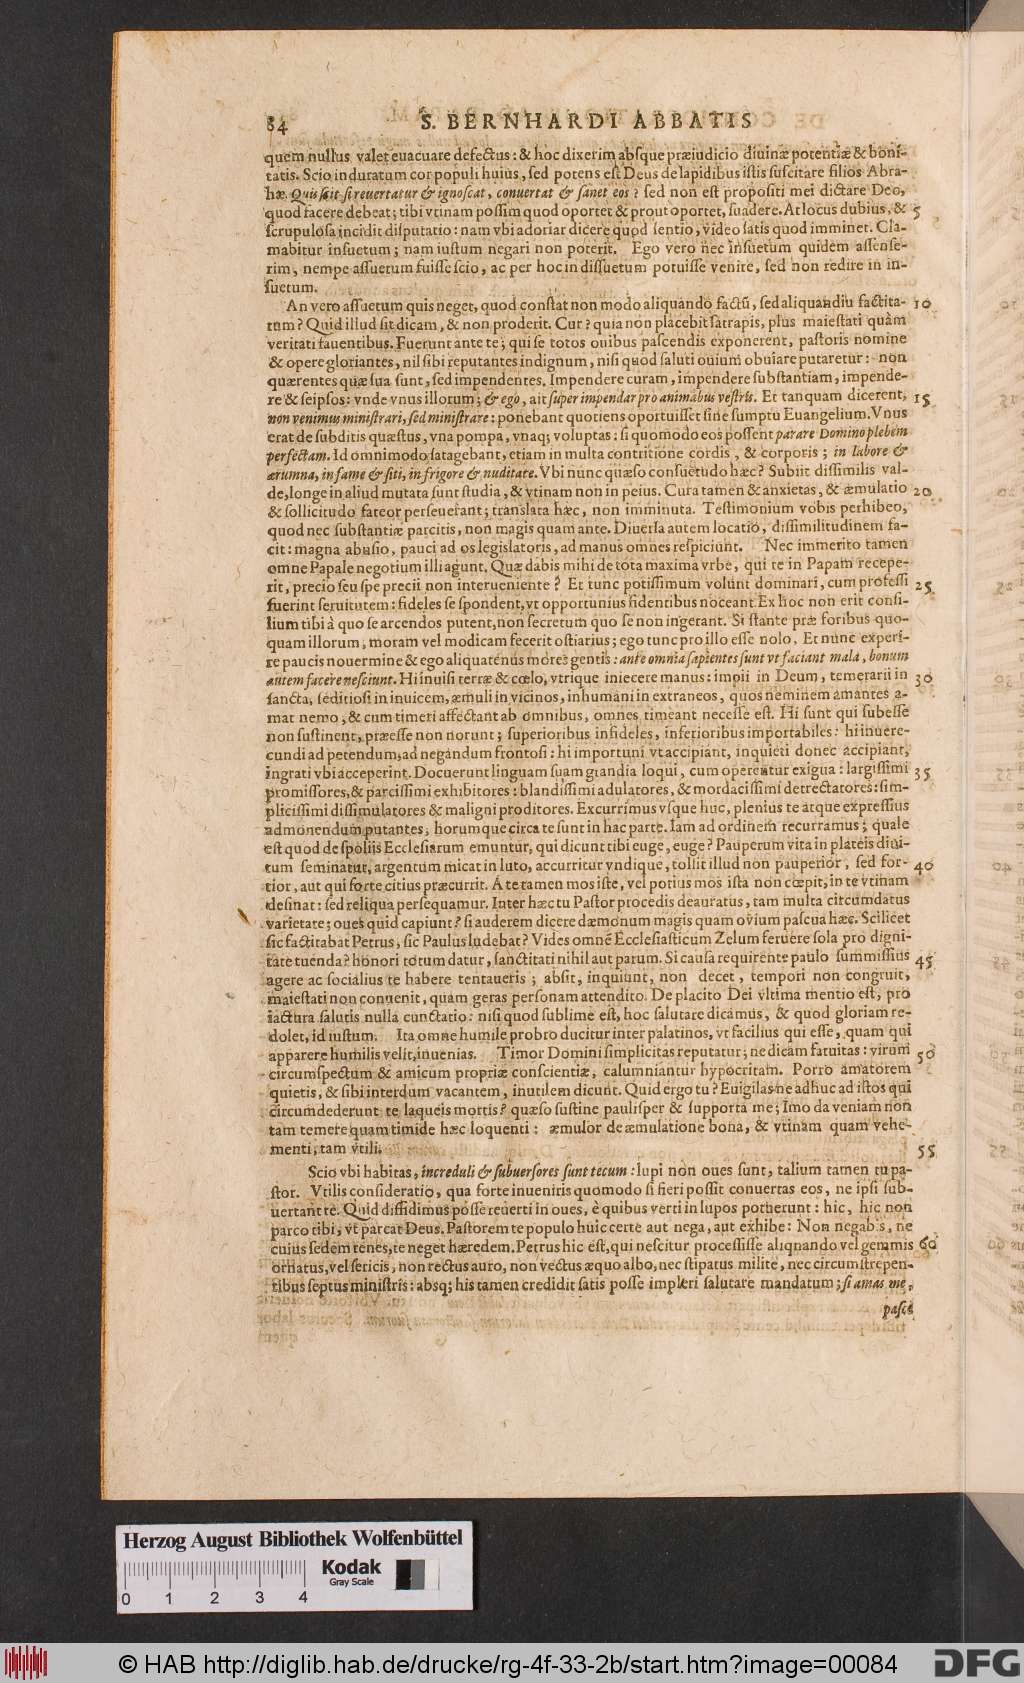 84 S. BERNHARDI ABBATIS
quem nullus valet euacuare defectus: & hoc dixerim absque præiudicio diuinæ potentiæ & boni-
tatis. Scio induratum cor populi huius, sed potens est Deus de lapidibus istis suscitare filios Abra-
hæ. Quis scit si reuertatur & ignoscat, conuertat & sanet eos? sed non est propositi mei dictare Deo,
quod facere debeat; tibi vtinam possim quod oportet & prout oportet, suadere. At locus dubius, & 5
scrupulosa incidit disputatio: nam vbi adoriar dicere quod sentio, video satis quod imminet. Cla-
mabitur insuetum; nam iustum negari non poterit. Ego vero nec insuetum quidem assense-
rim, nempe assuetum fuisse scio, ac per hoc in dissuetum potuisse venire, sed non redire in in-
suetum.
An vero assuetum quis neget, quod constat non modo aliquando factū, sed aliquandiu factita- 10
tum? Quid illud sit dicam, & non proderit. Cur? quia non placebit satrapis, plus maiestati quàm
veritati fauentibus. Fuerunt ante te; qui se totos ouibus pascendis exponerent, pastoris nomine
& opere gloriantes, nil sibi reputantes indignum, nisi quod saluti ouium obuiare putaretur: non
quærentes quæ sua sunt, sed impendentes. Impendere curam, impendere substantiam, impende-
re & seipsos: vnde vnus illorum; & ego, ait super impendar pro animabus vestris. Et tanquam dicerent, 15
non venimus ministrari, sed ministrare: ponebant quotiens oportuisset sine sumptu Euangelium. Vnus
erat de subditis quæstus, vna pompa, vnaq; voluptas: si quomodo eos possent parare Domino plebem
perfectam. Id omnimodo satagebant, etiam in multa contritione cordis, & corporis; in labore &
ærumna, in fame & siti, in frigore & nuditate. Vbi nunc quæso consuetudo hæc? Subiit dissimilis val-
de, longe in aliud mutata sunt studia, & vtinam non in peius. Cura tamen & anxietas, & æmulatio 20
& sollicitudo fateor perseuerant; translata hæc, non imminuta. Testimonium vobis perhibeo,
quod nec substantiæ parcitis, non magis quam ante. Diuersa autem locatio, dissimilitudinem fa-
cit: magna abusio, pauci ad os legislatoris, ad manus omnes respiciunt. Nec immerito tamen
omne Papale negotium illi agunt. Quæ dabis mihi de tota maxima vrbe, qui te in Papam recepe-
rit, precio seu spe precii non interueniente? Et tunc potissimum volunt dominari, cum professi 25
fuerint seruitutem: fideles se spondent, vt opportunius fidentibus noceant. Ex hoc non erit consi-
lium tibi à quo se arcendos putent, non secretum quo se non ingerant. Si stante præ foribus quo-
quam illorum, moram vel modicam fecerit ostiarius; ego tunc pro illo esse nolo. Et nunc experi-
re paucis nouerim ne & ego aliquatenus mores gentis: ante omnia sapientes sunt vt faciant mala, bonum
autem facere nesciunt. Hi inuisi terræ & cœlo, vtrique iniecere manus: impii in Deum, temerarii in 30
sancta, seditiosi in inuicem, æmuli in vicinos, inhumani in extraneos, quos neminem amantes a-
mat nemo, & cum timeri affectant ab omnibus, omnes timeant necesse est. Hi sunt qui subesse
non sustinent, præesse non norunt; superioribus infideles, inferioribus importabiles: hi inuere-
cundi ad petendum, ad negandum frontosi: hi importuni vt accipiant, inquieti donec accipiant,
ingrati vbi acceperint. Docuerunt linguam suam grandia loqui, cum operentur exigua: largissimi 35
promissores, & parcissimi exhibitores: blandissimi adulatores, & mordacissimi detrectatores: sim-
plicissimi dissimulatores & maligni proditores. Excurrimus vsque huc, plenius te atque expressius
admonendum putantes, horum que circa te sunt in hac parte. Iam ad ordinem recurramus; quale
est quod de spoliis Ecclesiarum emuntur, qui dicunt tibi euge, euge? Pauperum vita in plateis diui-
tum seminatur, argentum micat in luto, accurritur vndique, tollit illud non pauperior, sed for- 40
tior, aut qui forte citius præcurrit. A te tamen mos iste, vel potius mos ista non cœpit, in te vtinam
desinat: sed reliqua persequamur. Inter hæc tu Pastor procedis deauratus, tam multa circumdatus
varietate; oues quid capiunt? si auderem dicere dæmonum magis quam ovium pascua hæc. Scilicet
sic factitabat Petrus, sic Paulus ludebat? Vides omnē Ecclesiasticum Zelum feruere sola pro digni-
tate tuenda? honori totum datur, sanctitati nihil aut parum. Si causa requirente paulo summissius 45
agere ac socialius te habere tentaueris; absit, inquiunt, non decet, tempori non congruit,
maiestati non conuenit, quam geras personam attendito. De placito Dei vltima mentio est, pro
iactura salutis nulla cunctatio: nisi quod sublime est, hoc salutare dicamus, & quod gloriam re-
dolet, id iustum. Ita omne humile probro ducitur inter palatinos, vt facilius qui esse, quam qui
apparere humilis velit, inuenias. Timor Domini simplicitas reputatur; ne dicam fatuitas: virum 50
circumspectum & amicum propriæ conscientiæ, calumniantur hypocritam. Porro amatorem
quietis, & sibi interdum vacantem, inutilem dicunt. Quid ergo tu? Euigilas ne adhuc ad istos qui
circumdederunt te laqueis mortis? quæso sustine paulisper & supporta me; Imo da veniam non
tam temere quam timide hæc loquenti: æmulor de æmulatione bona, & vtinam quam vehe-
menti, tam vtili. 55
Scio vbi habitas, increduli & subuersores sunt tecum: lupi non oues sunt, talium tamen tu pa-
stor. Vtilis consideratio, qua forte inueniris quomodo si fieri possit conuertas eos, ne ipsi sub-
uertant te. Quid diffidimus posse reuerti in oues, è quibus verti in lupos potuerunt: hic, hic non
parco tibi, vt parcat Deus. Pastorem te populo huic certe aut nega, aut exhibe: Non negabis, ne
cuius sedem tenes, te neget hæredem. Petrus hic est, qui nescitur processisse aliquando vel gemmis 60
ornatus, vel sericis, non tectus auro, non vectus æquo albo, nec stipatus milite, nec circumstrepen-
tibus septus ministris: absq; his tamen credidit satis posse impleri salutare mandatum; si amas me,
pasce
Herzog August Bibliothek Wolfenbüttel
Kodak
Gray Scale
0 1 2 3 4
© HAB http://diglib.hab.de/drucke/rg-4f-33-2b/start.htm?image=00084
DFG